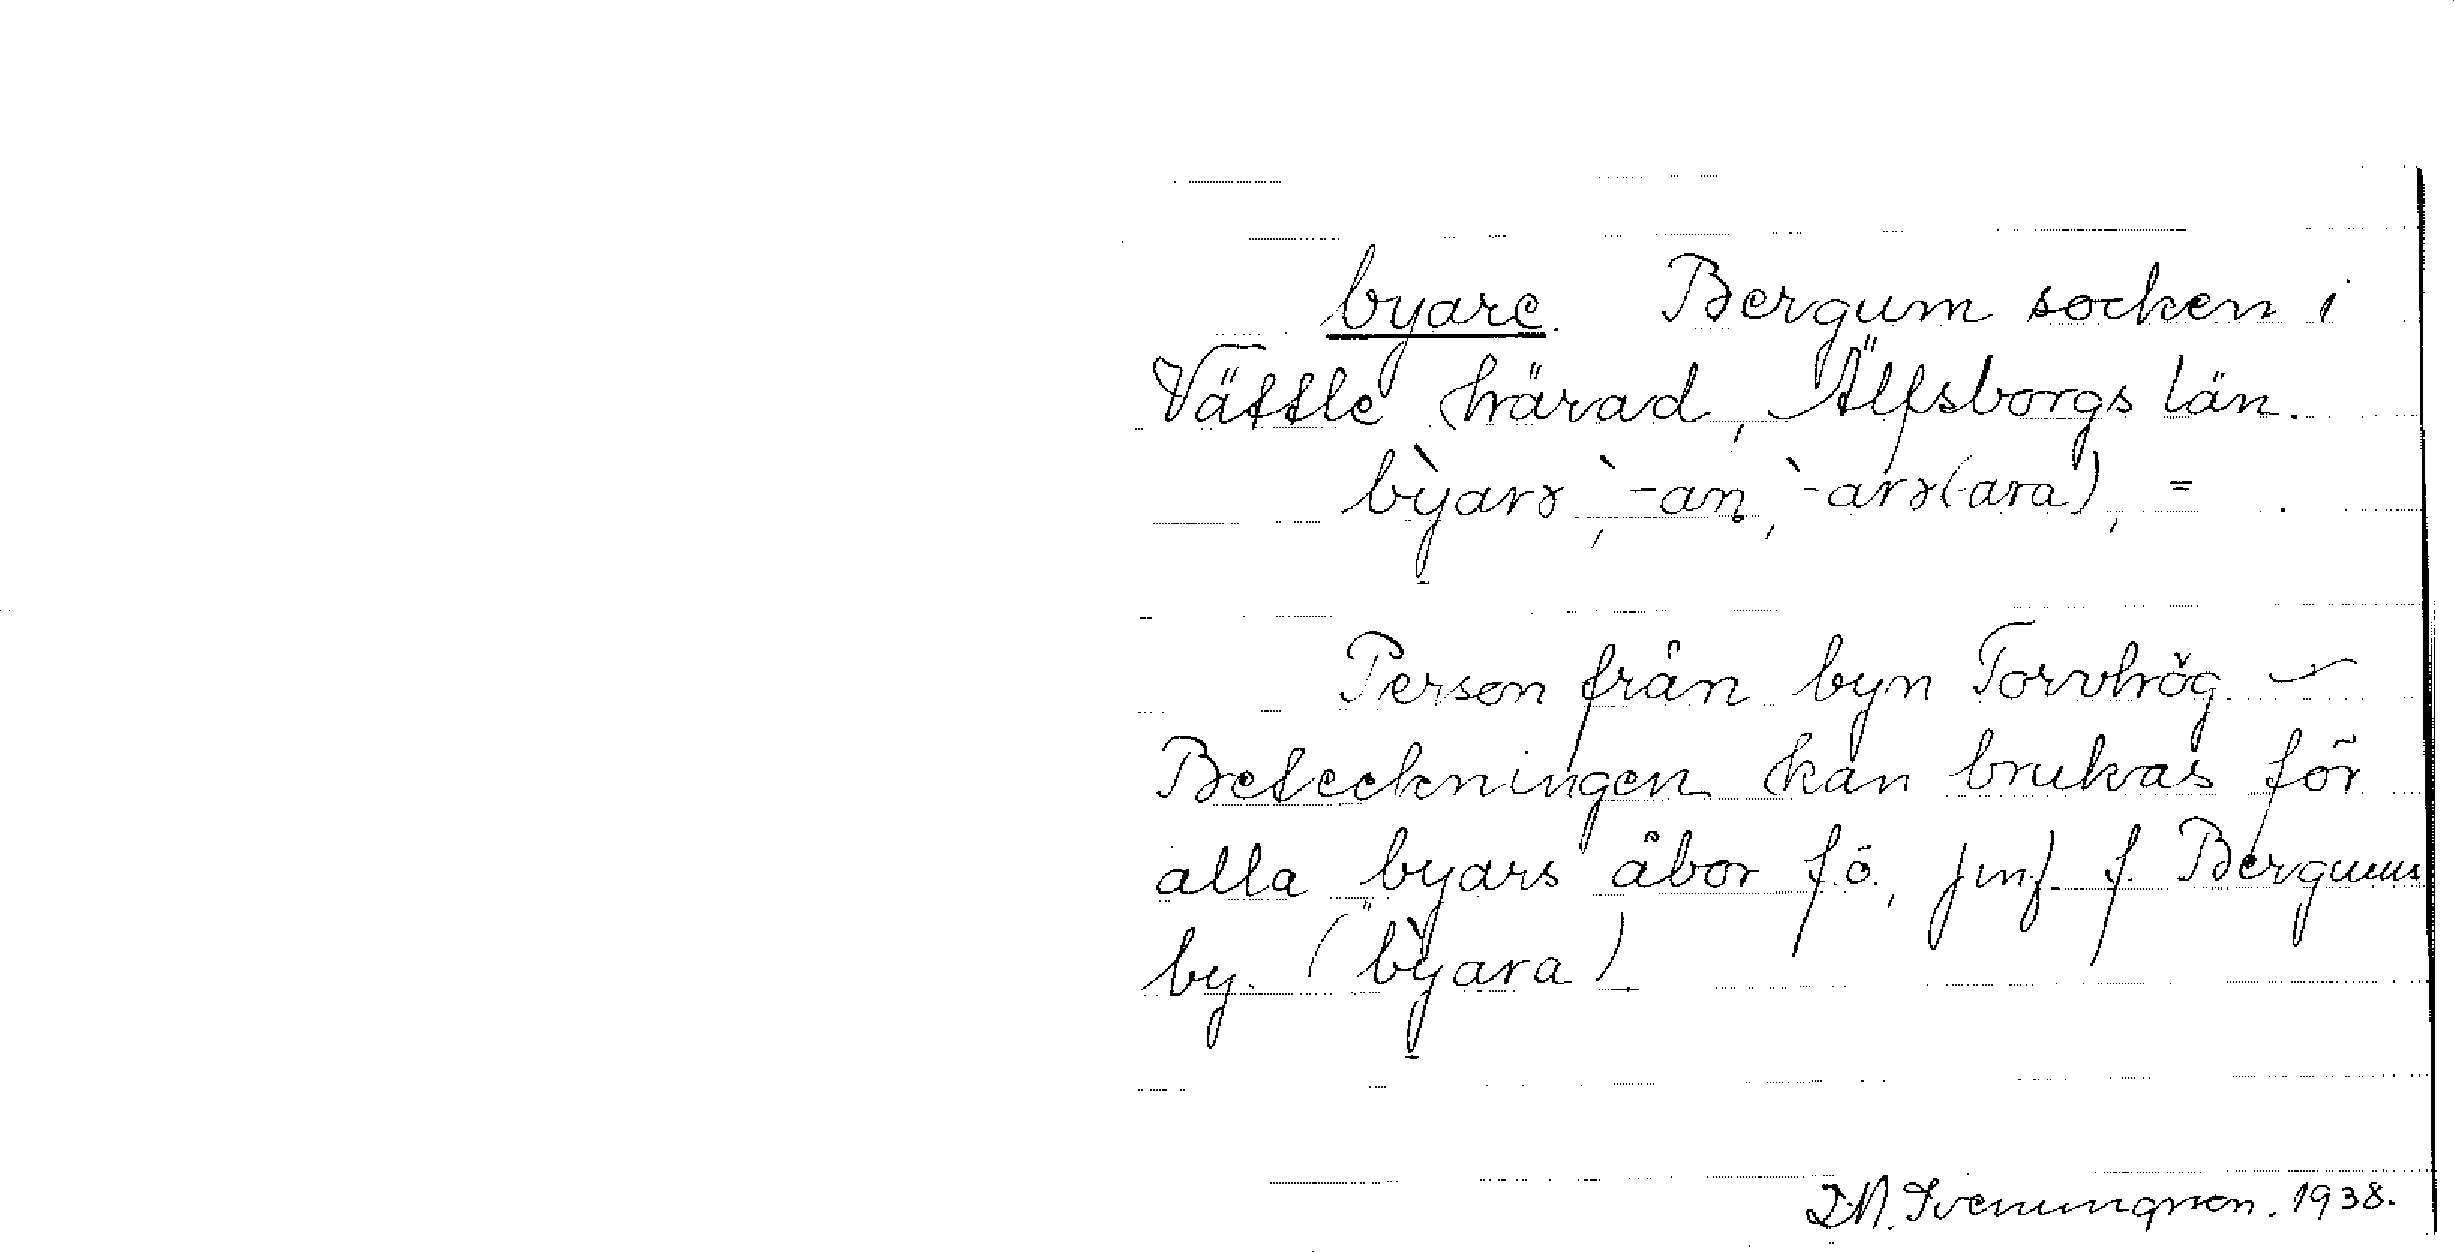 byare. Bergum socken i
Vättle härad, Älfsborgs län.
bỳarɤ, `-aṇ, `-arɤ(-ara), = .
Person från byn Torvhög. –
Beteckningen kan brukas för
alla byars åbor f.ö., jmf. f. Bergums
by. (bỳara).
D.A. Svenungsson. 1938.